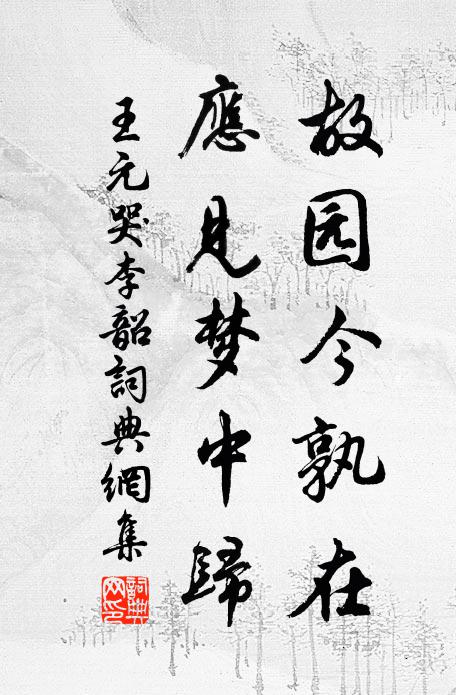 故园今孰在
應見梦中歸
王元哭李韶詞典網集
詞典网印